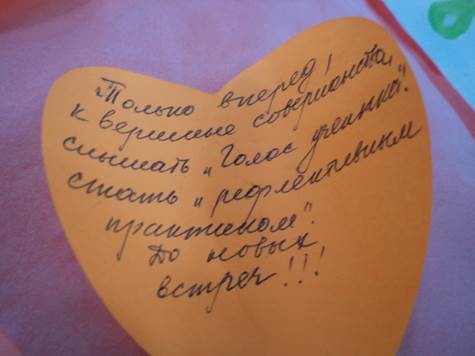 "Только вперед!
к вершине совершенства,
слышать "Голос ученика".
стать "рефлективным
практиком".
До новых
встреч!!!